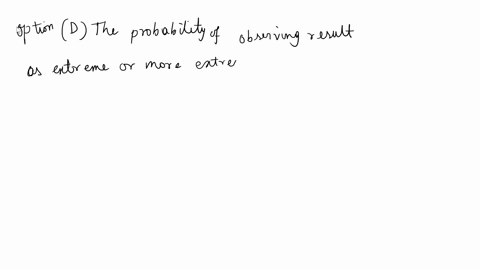 option (D) The probability of observing result
as extreme or more extre